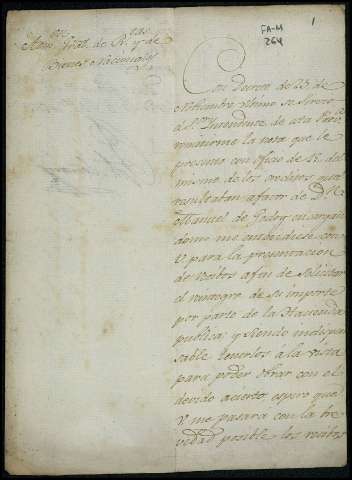 FA-M
264
1
Adm.on Gral. de R.s y de
Bienes Nacionales
Con Decreto de 25 de
Noviembre ultimo se sirvio
el S.r Yntendente de esta Prov.a
remitirme la nota que le
presento con oficio de 12 del
mismo de los creditos que
resultaban a favor de D.n
Manuel de Godoy encargan
dome me entendiese con
V para la presentacion
de recibos a fin de solicitar
el reintegro de su importe
por parte de la Hacienda
publica y siendo indispen
sable tenerlos a la vista
para poder obrar con el
devido acierto espero que
V me pasara con la bre
vedad posible los recibos